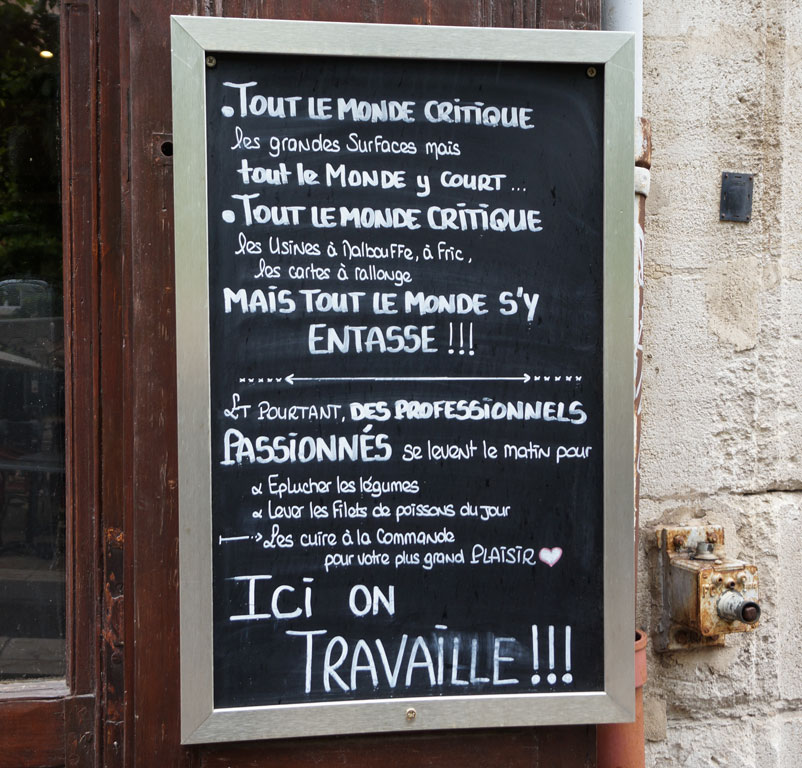 • TOUT LE MONDE CRITIQUE
les grandes Surfaces mais
tout le MONDE y COURT ...
• TOUT LE MONDE CRITIQUE
les Usines à Malbouffe, à Fric,
les cartes à rallonge
MAIS TOUT LE MONDE S'Y
ENTASSE !!!
Et POURTANT, DES PROFESSIONNELS
PASSIONNÉS se levent le matin pour
Eplucher les légumes
Lever les Filets de poissons du jour
Les cuire à la Commande
pour votre plus grand PLAISIR
ICI ON
TRAVAILLE !!!